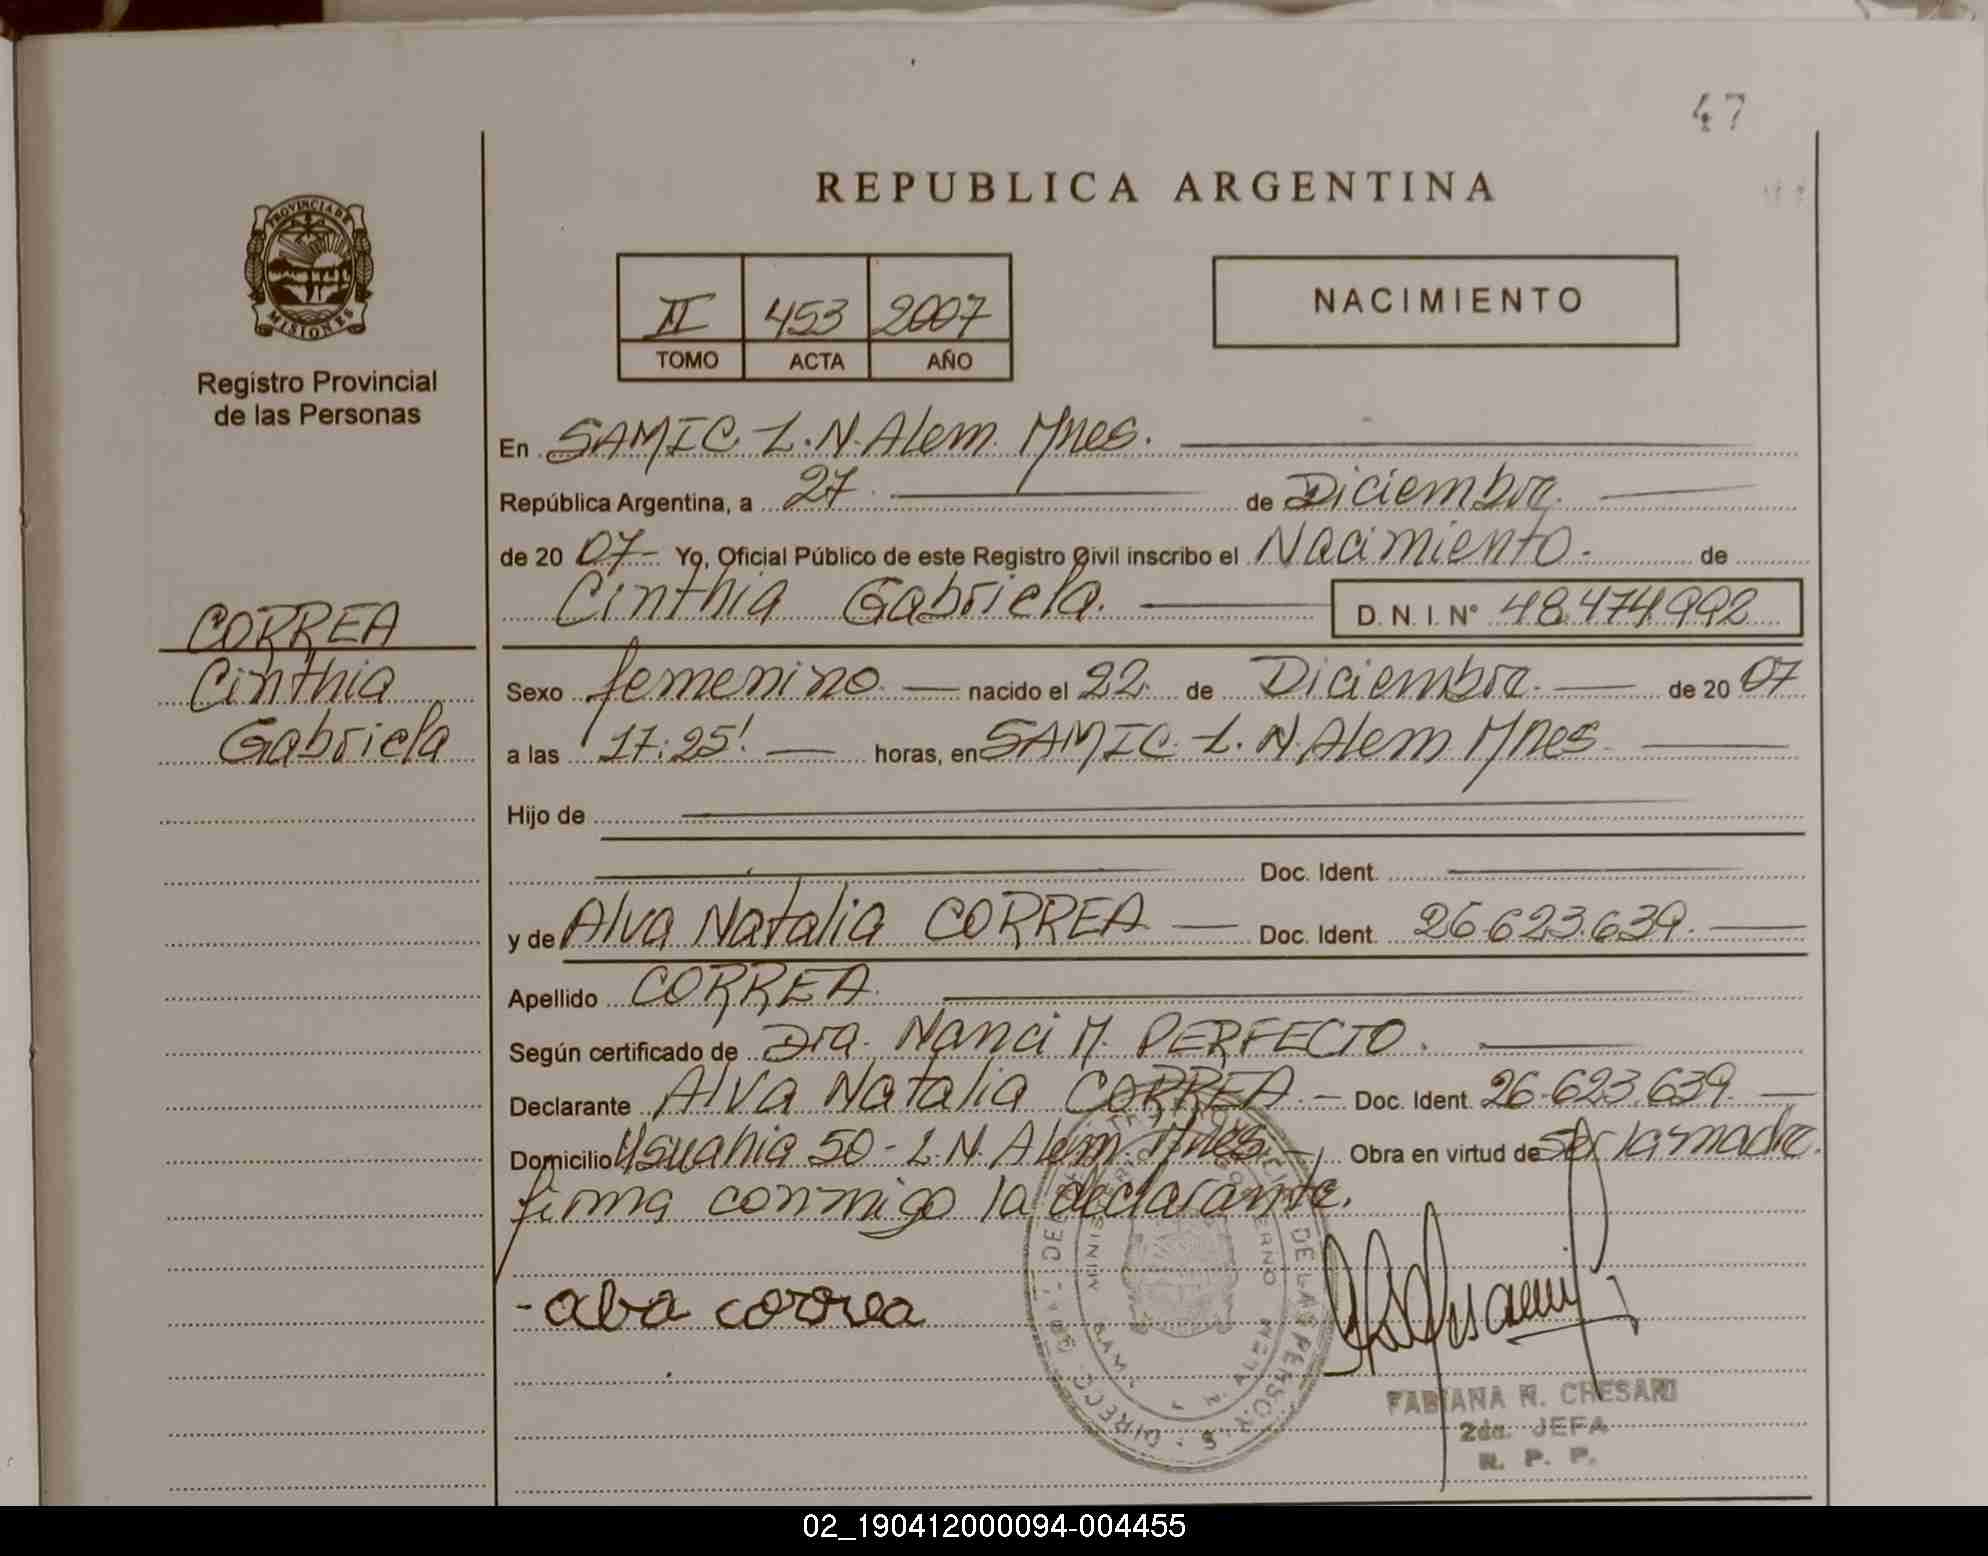 47
REPUBLICA ARGENTINA
PROVINCIA DE
MISIONES
Registro Provincial
de las Personas
II 453 2007
TOMO ACTA AÑO
NACIMIENTO
En SAMIC. L.N. Alem. Mnes.
República Argentina, a 27 de Diciembre.
de 20 07- Yo, Oficial Público de este Registro Civil inscribo el Nacimiento.- de
Cinthia Gabriela. D. N. I. N° 48.474.992
CORREA
Cinthia
Gabriela
Sexo femenino. nacido el 22. de Diciembre. de 20 07
a las 17:25'. horas, en SAMIC. L. N. Alem Mnes.
Hijo de
Doc. Ident.
y de Alva Natalia CORREA Doc. Ident. 26.623.639.
Apellido CORREA.
Según certificado de Dra. Nanci M. PERFECTO.
Declarante Alva Natalia CORREA.- Doc. Ident. 26.623.639.
Domicilio Usuahia 50 - L.N. Alem. Mnes.- Obra en virtud de ser la madre.
firma conmigo la declarante.
- alva correa
FABIANA N. CHESANI
2da. JEFA
R. P. P.
02_190412000094-004455